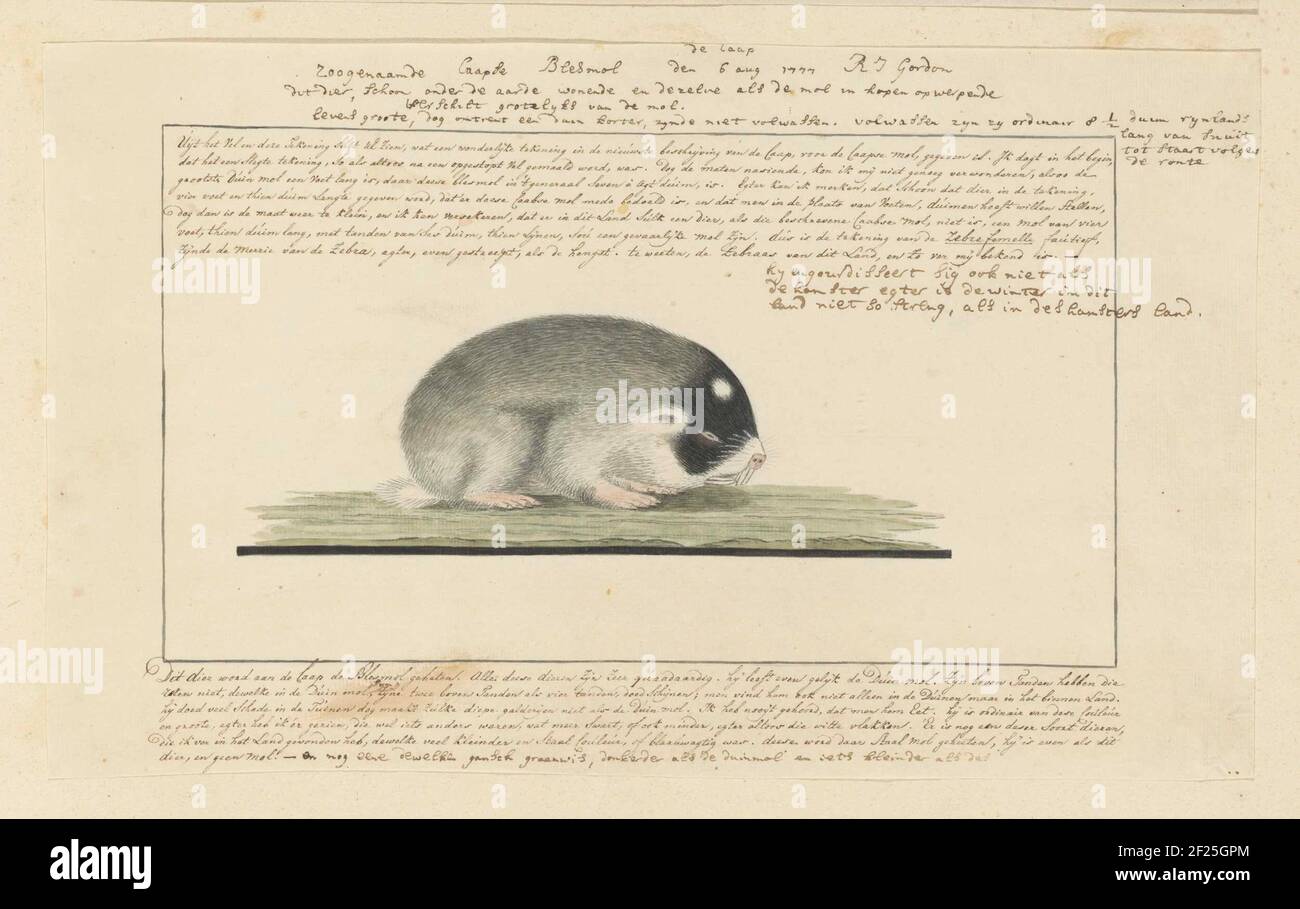 de Caap
zoogenaamde Caapse Blesmol den 6 aug 1777 R J Gordon
dit dier, schoon onder de aarde wonende en dezelve als de mol in hopen opwerpende
verschilt grotelyks van de mol.
levens groote, dog omtrent een duim korter, zynde niet volwassen. volwassen zyn zy ordinair 8 1/2 duim rynlands
lang van snuit
tot staart volgens
de ronte
Uijt het Vel en dese Tekening sult Ul. Zien, wat een wonderlijke tekening in de nieuwste beschrijving van de Caap, voor de Caapse mol, gegeven is. Ik dagt in het begin,
dat het een slegte tekening, so als altoos na een opgestopt Vel gemaakt word, was. Dog de maten nasiende, kon ik mij niet genoeg verwonderen, alsoo de
grootste Duin mol een Voet lang is, daar deese blesmol in 't generaal Seven à Agt duim, is. Egter kan ik merken, dat schoon dat dier in de tekening,
vier voet en thien duim Lengte gegeven word, dat er deese Caabse mol mede bedoeld is, en dat men in de plaats van Voeten, duimen heeft willen stellen,
dog dan is de maat weer te klein, en ik kan verzekeren, dat er in dit Land sulk een dier, als die beschrevene Caabse mol, niet is, een mol van vier
voet, thien duim lang, met tanden van ses duim, thien Lynen, soú een gevaarlijke mol zijn. dús is de tekening van de Zebre femelle factief,
Zijnde de merrie van de Zebra, agter, even gestreept, als de hengst. te weeten, de Zebraas van dit Land, en zo ver mij bekend is.
hy engourdisseert sig ook niet als
de hamster egter is de winter in dit
land niet so streng, als in des hamsters land.
Dit dier word aan de Caap de Blesmol geheten. Alle deese dieren zijn zeer quaadaardig. hij leeft even gelijk de Duin mol. Zijn boven Tanden hebben die
reten niet, dewelke in de Duin mol, zijne twee boven Tanden als vier tanden, doed schijnen; men vind hem ook niet alleen in de Duinen maar in het binnen Land.
hij doed veel schade in de Tuinen dog maakt zulke diepe galderijen niet als de Duin mol. Ik heb nooijt gehoord, dat men hem Eet. hij is ordinair van dese couleur
en groote, egter heb ik er gezien, die wel iets anders waren, wat meer swart, of ook minder, egter altoos die witte vlakken. Er is nog een deser Soort dieren,
die ik ver in het Land gevonden heb, dewelke veel kleinder en Staal couleur, of blaauwagtig was. deese word daar Staal mol geheeten, hij is even als dit
dier, en geen mol! — en nog eene dewelke gansch graauw is, donkerder als de duinmol en iets kleinder als de
alamy
Image ID: 2F25GPM
www.alamy.com